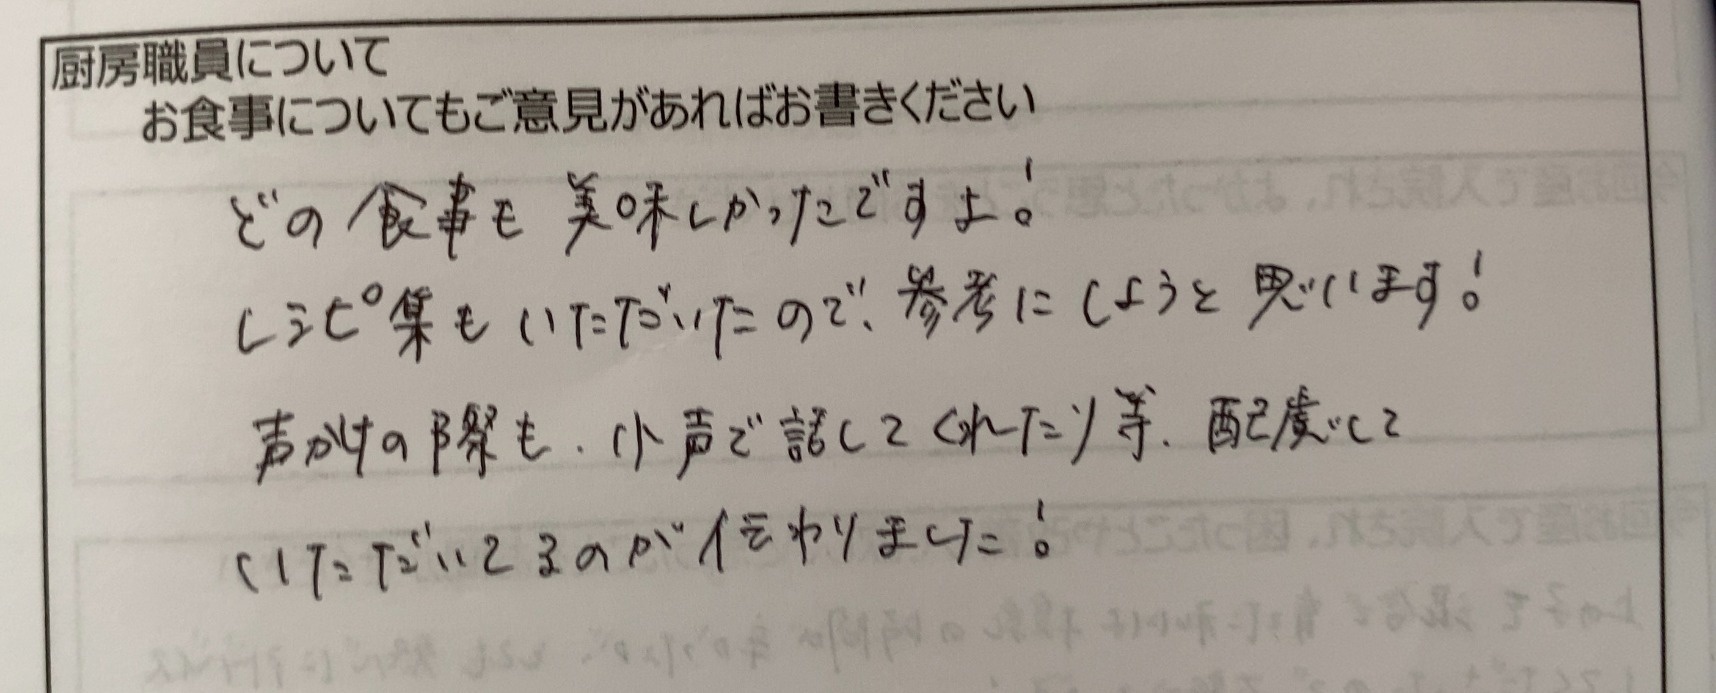 厨房職員について
お食事についてもご意見があればお書きください
どの食事も美味しかったですよ!
レシピ集もいただいたので、参考にしようと思います!
声かけの際も、小声で話してくれたり等、配慮して
いただいてるのが伝わりました!